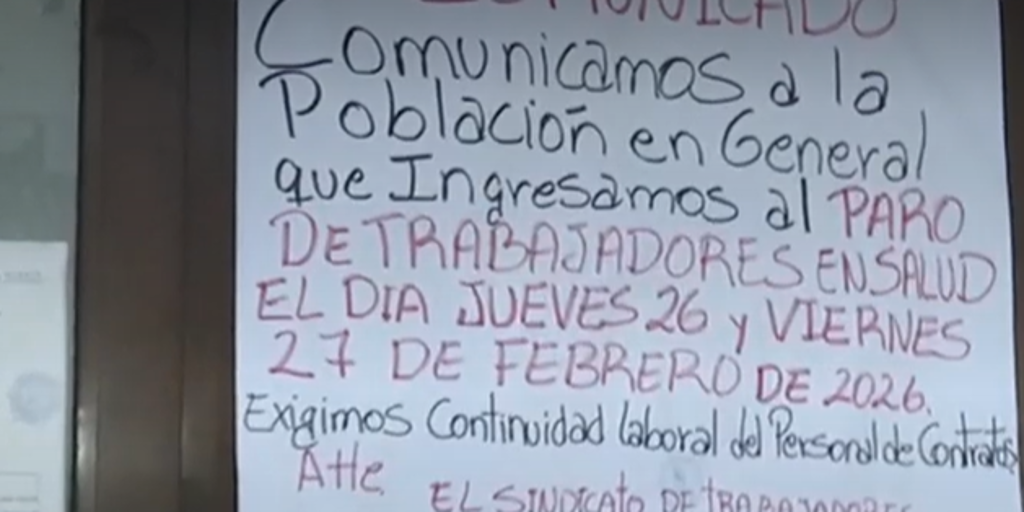 COMUNICADO
Comunicamos a la
Población en General
que Ingresamos al PARO
DE TRABAJADORES EN SALUD
EL DIA JUEVES 26 y VIERNES
27 DE FEBRERO DE 2026.
Exigimos Continuidad laboral del Personal de Contratos
Atte.
EL SINDICATO DE TRABAJADORES